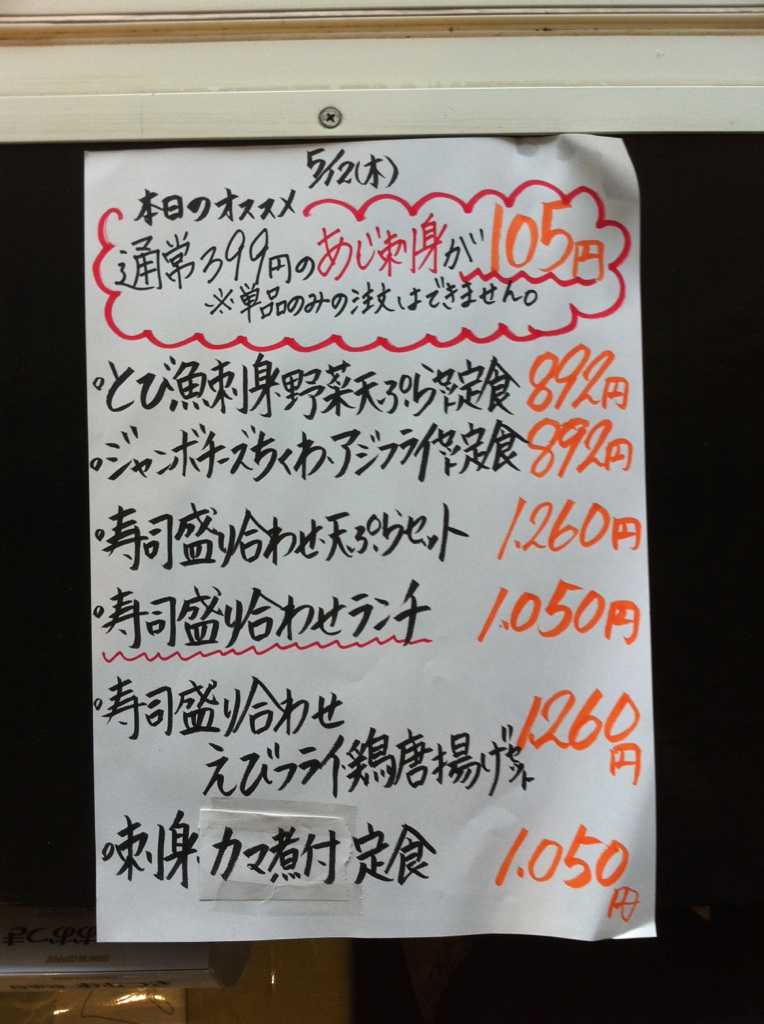 5/12(木)
本日のオススメ
通常399円のあじ刺身が105円
※単品のみの注文はできません。
とび魚刺身・野菜天ぷらセット定食 892円
ジャンボチーズちくわ・アジフライセット定食 892円
寿司盛り合わせ・天ぷらセット 1.260円
寿司盛り合わせランチ 1.050円
寿司盛り合わせ 1260円
えびフライ鶏唐揚げセット
刺身・カマ煮付定食 1.050円